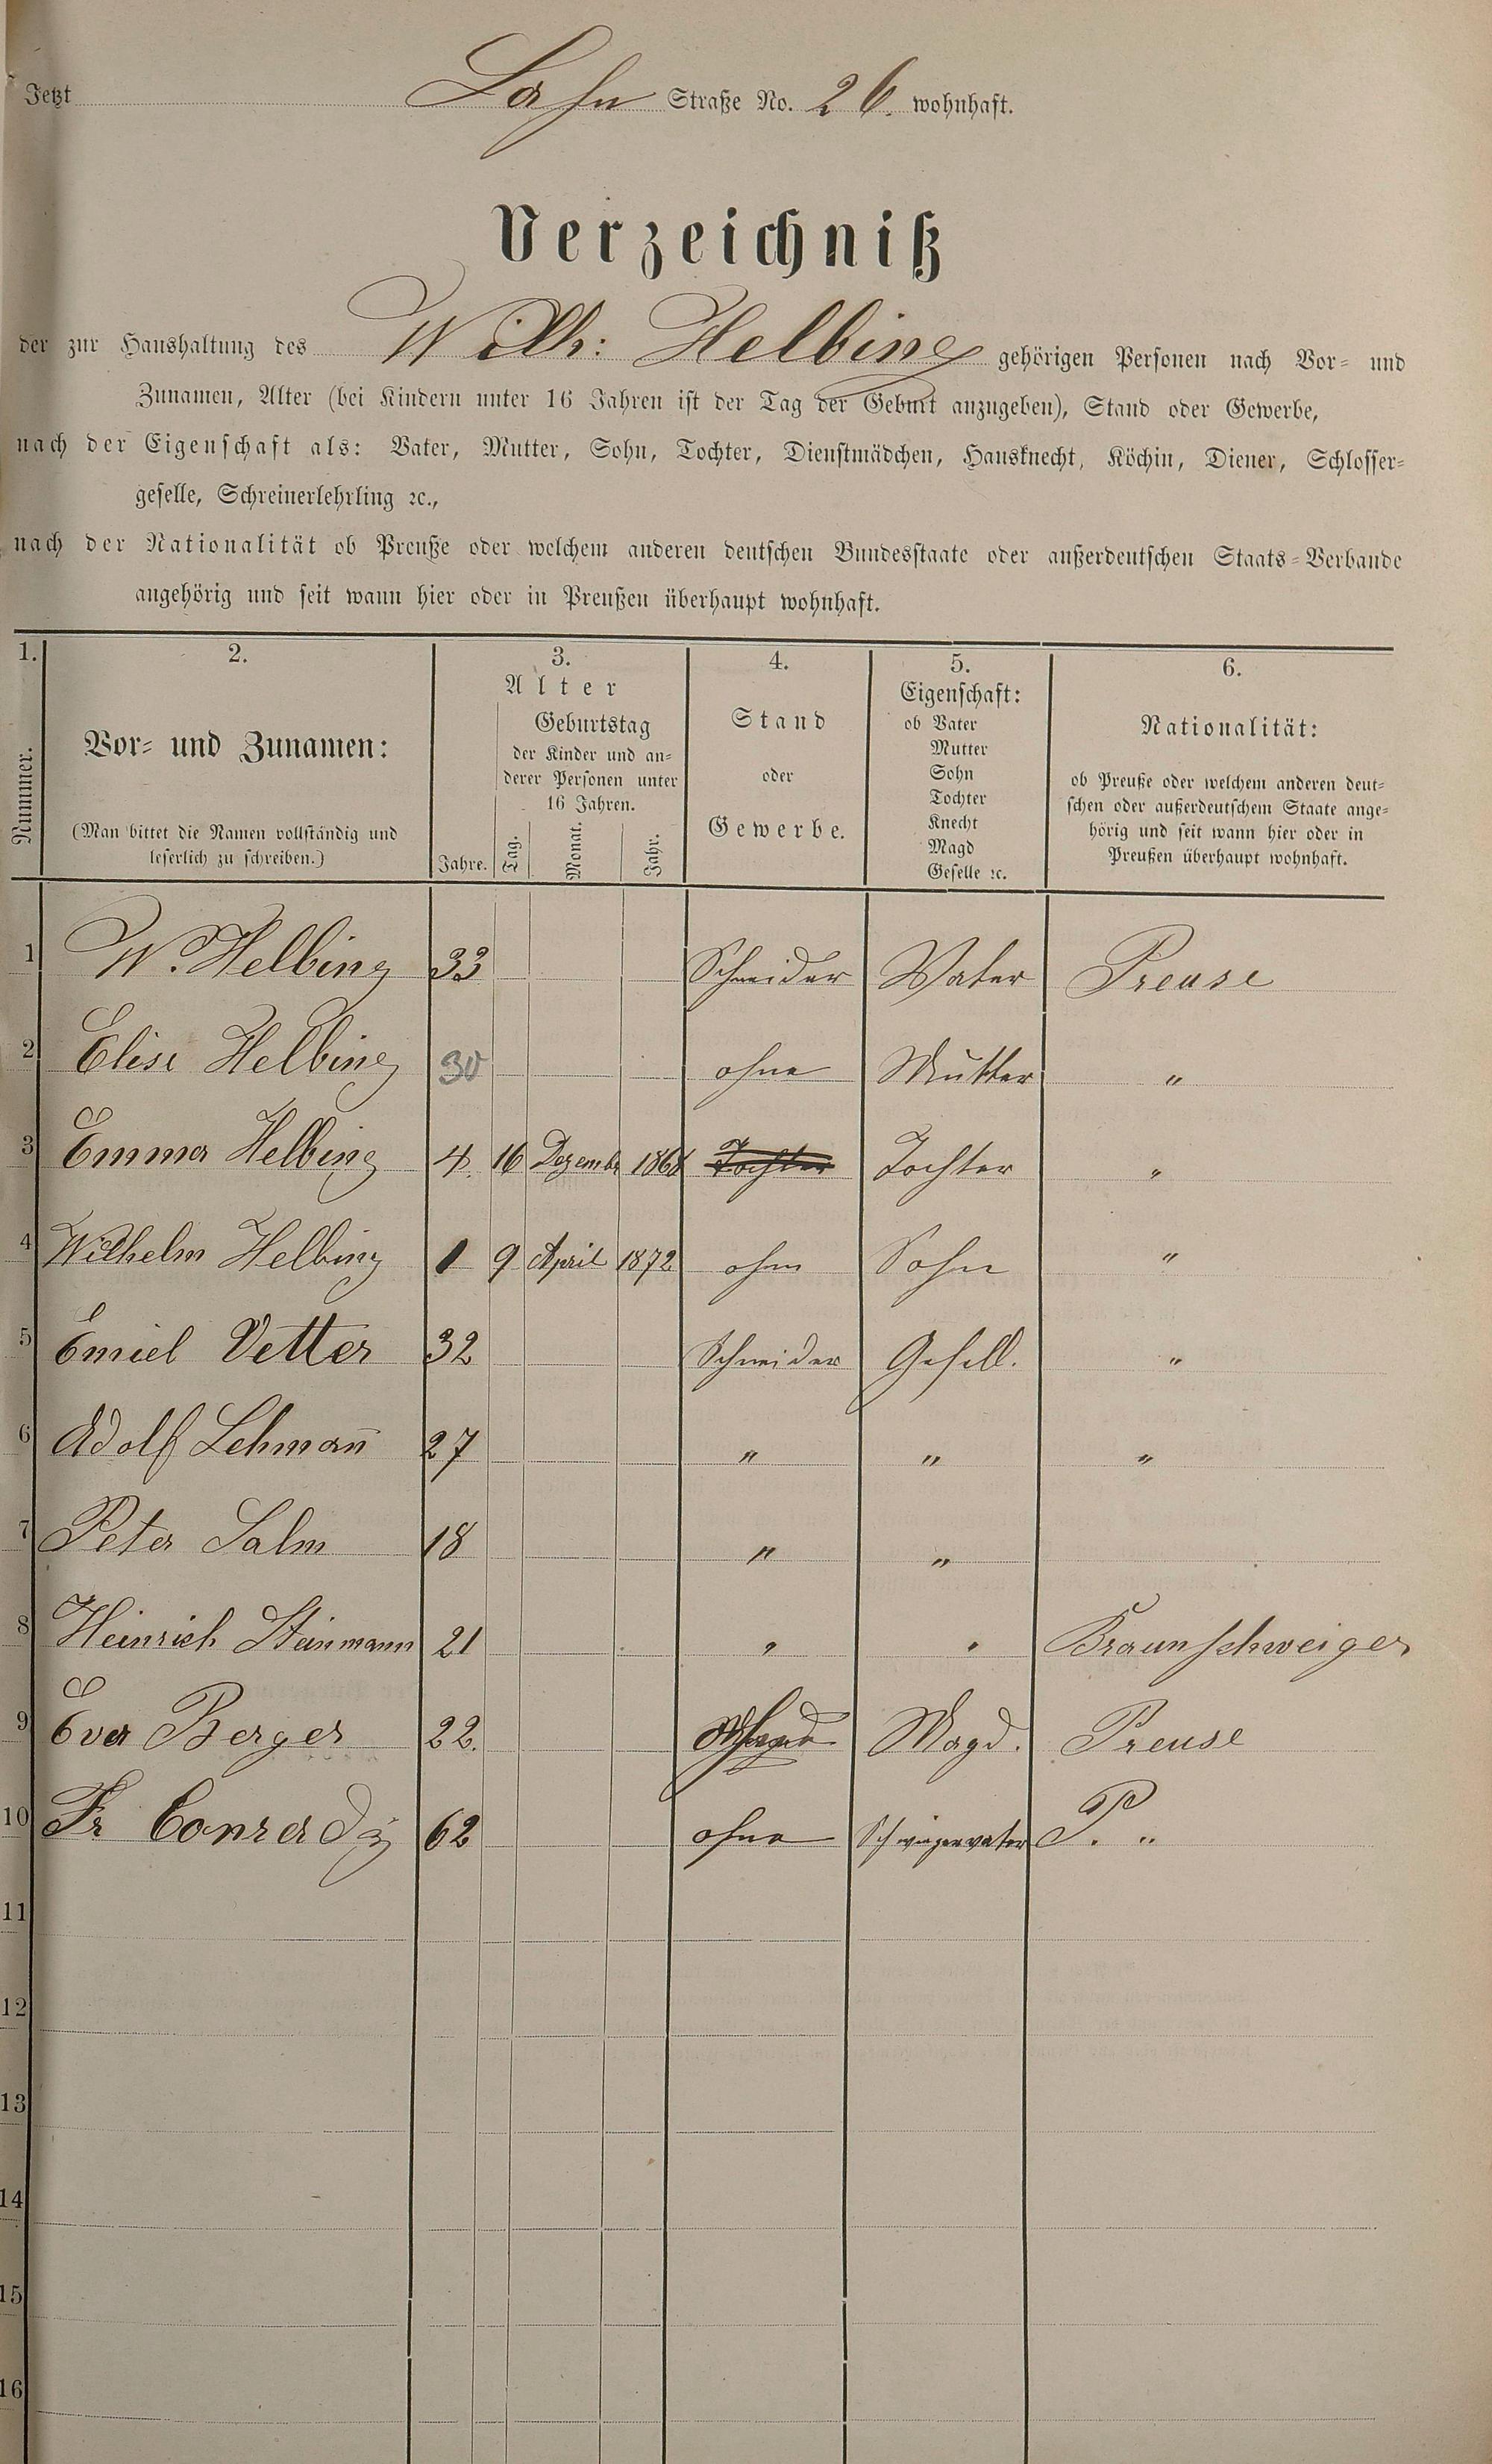 Jetzt Lahn Straße No. 26. wohnhaft.
Verzeichniß
der zur Haushaltung des Wilh: Helbing gehörigen Personen nach Vor- und
Zunamen, Alter (bei Kindern unter 16 Jahren ist der Tag der Geburt anzugeben), Stand oder Gewerbe,
nach der Eigenschaft als: Vater, Mutter, Sohn, Tochter, Dienstmädchen, Hausknecht, Köchin, Diener, Schlosser-
geselle, Schreinerlehrling ꝛc.,
nach der Nationalität ob Preuße oder welchem anderen deutschen Bundesstaate oder außerdeutschen Staats-Verbande
angehörig und seit wann hier oder in Preußen überhaupt wohnhaft.
1. 2. 3. 4. 5. 6.
Nummer.
Vor- und Zunamen:
(Man bittet die Namen vollständig und
leserlich zu schreiben.)
Alter
Jahre.
Geburtstag
der Kinder und an-
derer Personen unter
16 Jahren.
Tag. Monat. Jahr.
Stand
oder
Gewerbe.
Eigenschaft:
ob Vater
Mutter
Sohn
Tochter
Knecht
Magd
Geselle ꝛc.
Nationalität:
ob Preuße oder welchem anderen deut-
schen oder außerdeutschem Staate ange-
hörig und seit wann hier oder in
Preußen überhaupt wohnhaft.
1 W. Helbing 33 Schneider Vater Preuse
2 Elise Helbing 30 ohne Mutter "
3 Emma Helbing 4. 16 Dezembr 1868 Tochter Tochter "
4 Wilhelm Helbing 1 9 April 1872 ohne Sohn "
5 Emiel Vetter 32 Schneider Gesell. "
6 Adolf Lehmañ 27 " " "
7 Peter Salm 18 " "
8 Heinrich Steinmann 21 " " Braunschweiger
9 Eva Berger 22. Magd. Preuse
10 Fr Conrady 62 ohne Schwigervater P. "
11
12
13
14
15
16